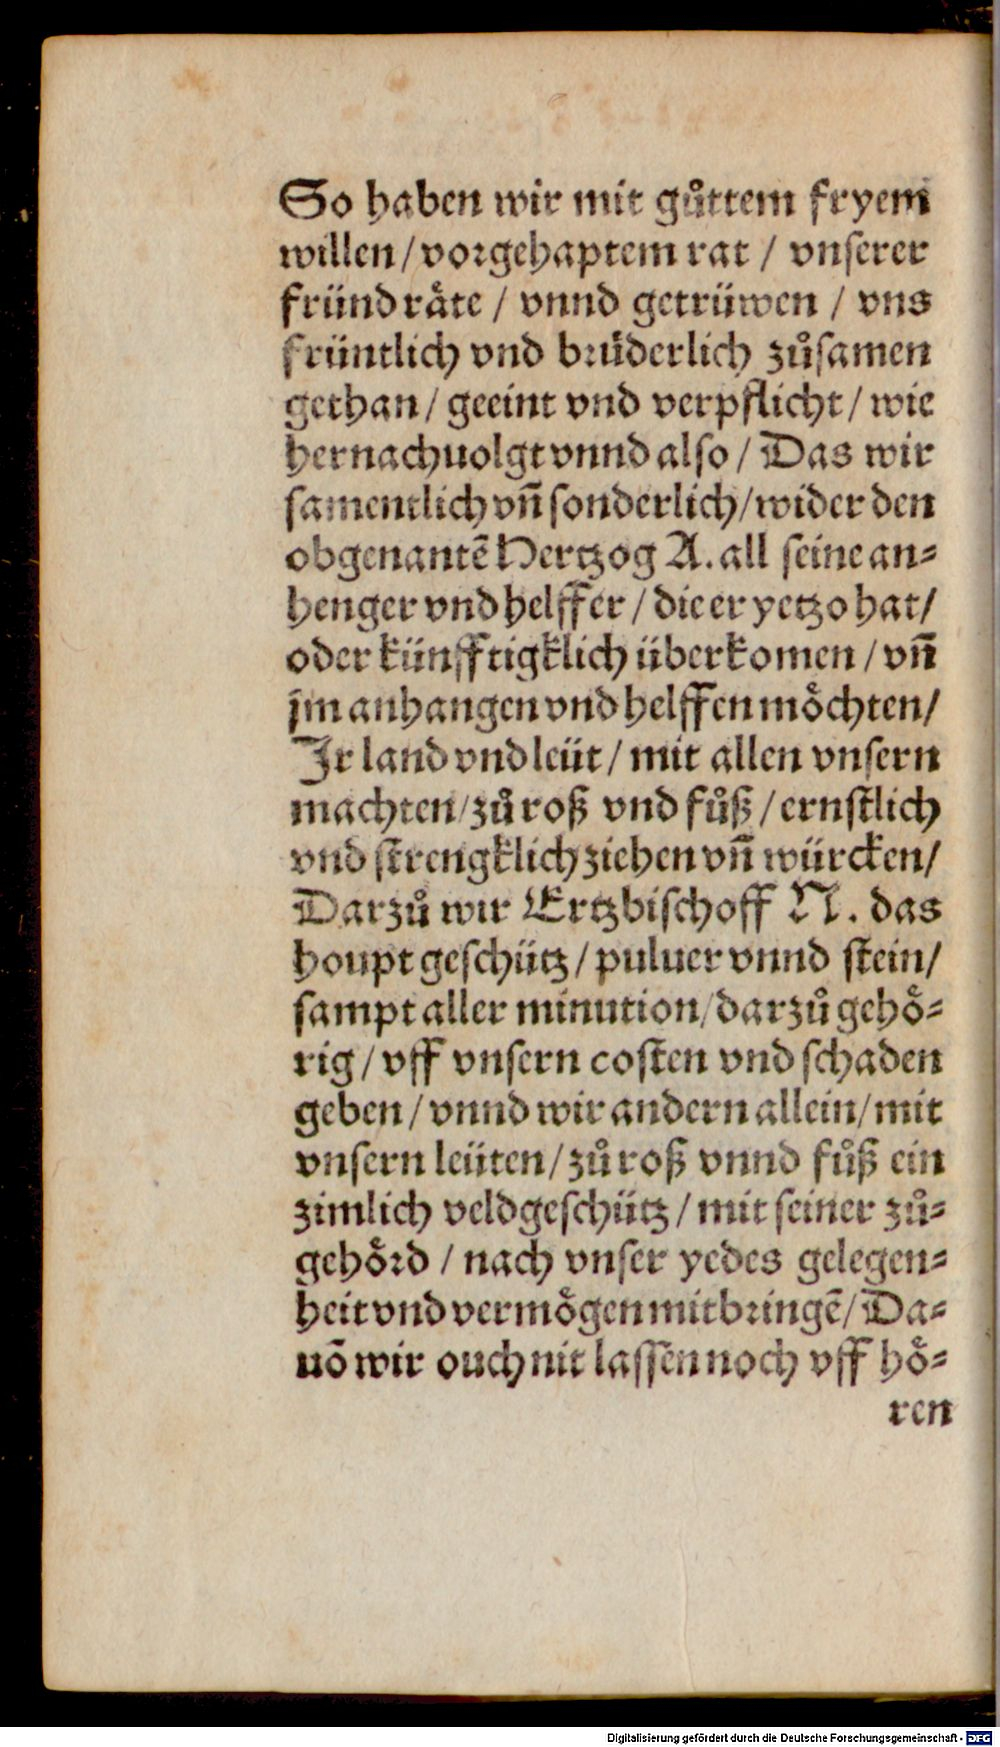 So haben wir mit gůttem fryem
willen / vorgehaptem rat / vnserer
fründ räte / vnnd getrüwen / vns
früntlich vnd brüderlich zůsamen
gethan / geeint vnd verpflicht / wie
hernachuolgt vnnd also / Das wir
samentlich vn̄ sonderlich / wider den
obgenantē Hertzog A. all seine an⸗
henger vnd helffer / die er yetzo hat /
oder künfftigklich überkomen / vn̄
jm anhangen vnd helffen möchten /
Ir land vnd leüt / mit allen vnsern
machten / zů roß vnd fůß / ernstlich
vnd strengklich ziehen vn̄ würcken /
Darzů wir Ertzbischoff N. das
houpt geschütz / puluer vnnd stein /
sampt aller minution / darzů gehö⸗
rig / vff vnsern costen vnd schaden
geben / vnnd wir andern allein / mit
vnsern leüten / zů roß vnnd fůß ein
zimlich veldgeschütz / mit seiner zů⸗
gehörd / nach vnser yedes gelegen⸗
heit vnd vermögen mitbringē / Da⸗
uō wir ouch nit lassen noch vff hö⸗
ren
Digitalisierung gefördert durch die Deutsche Forschungsgemeinschaft - DFG